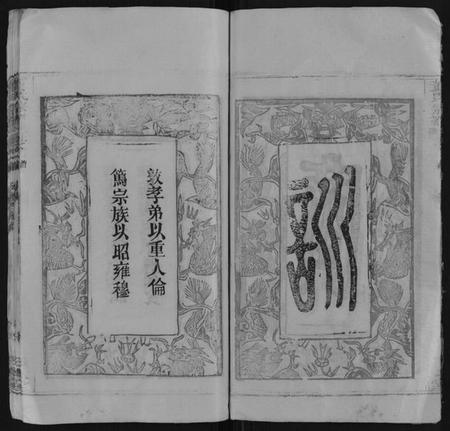 訓
敦孝弟以重人倫
篤宗族以昭雍穆